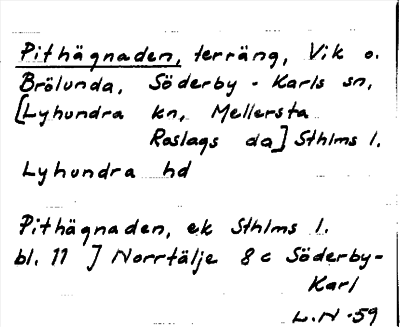 Pithägnaden, terräng, Vik o.
Brölunda, Söderby - Karls sn,
[Lyhundra kn, Mellersta
Roslags da] Sthlms l.
Lyhundra hd
Pithägnaden, ek Sthlms l.
bl. 11 J Norrtälje 8 c Söderby-
Karl
L.N -59